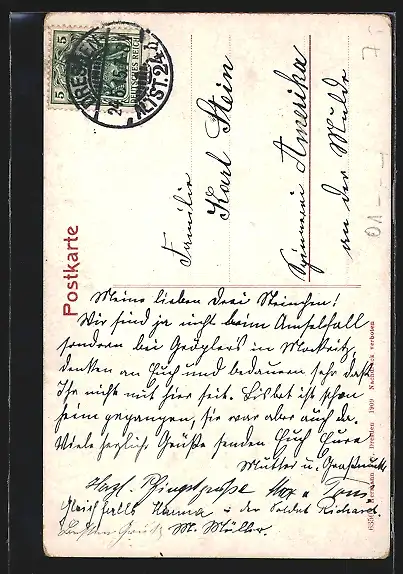 5
5
DEUTSCHES REICH
DRESDEN
ALTST. 24
Postkarte
Familie
Karl Stein
Spinnerei Amerika
an der Mulde
Meine lieben drei Steinchen!
Wir sind ja nicht beim Amselfall
sondern bei Geäplers in Mockritz,
denken an Euch und bedauern sehr daß
Ihr nicht mit hier seit. Lisbet ist schon
heim gegangen, sie war aber auch da.
Viele herzlich. Grüße senden Euch Eure
Mutter u. Großmutter
Herzl. Pfingstgrüße Max u
Gleichfalls Hanna u der Soldat Richard.
M. Müller
Dresden 1909 Nachdruck verboten